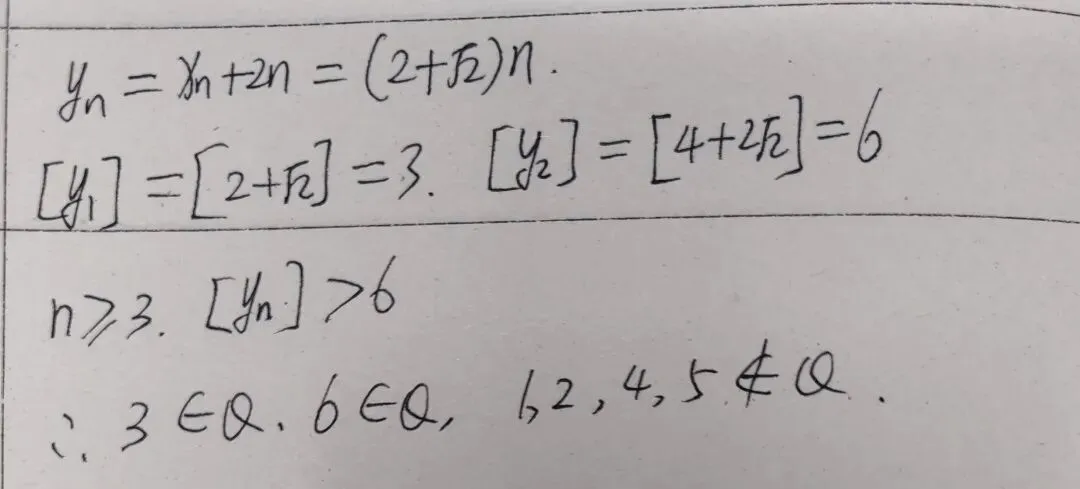 yₙ = xₙ+2n = (2+√2)n.
[y₁] = [2+√2] = 3. [y₂] = [4+2√2] = 6
n⩾3. [yₙ] > 6
∴ 3 ∈ Q. 6 ∈ Q, 1,2,4,5 ∉ Q.